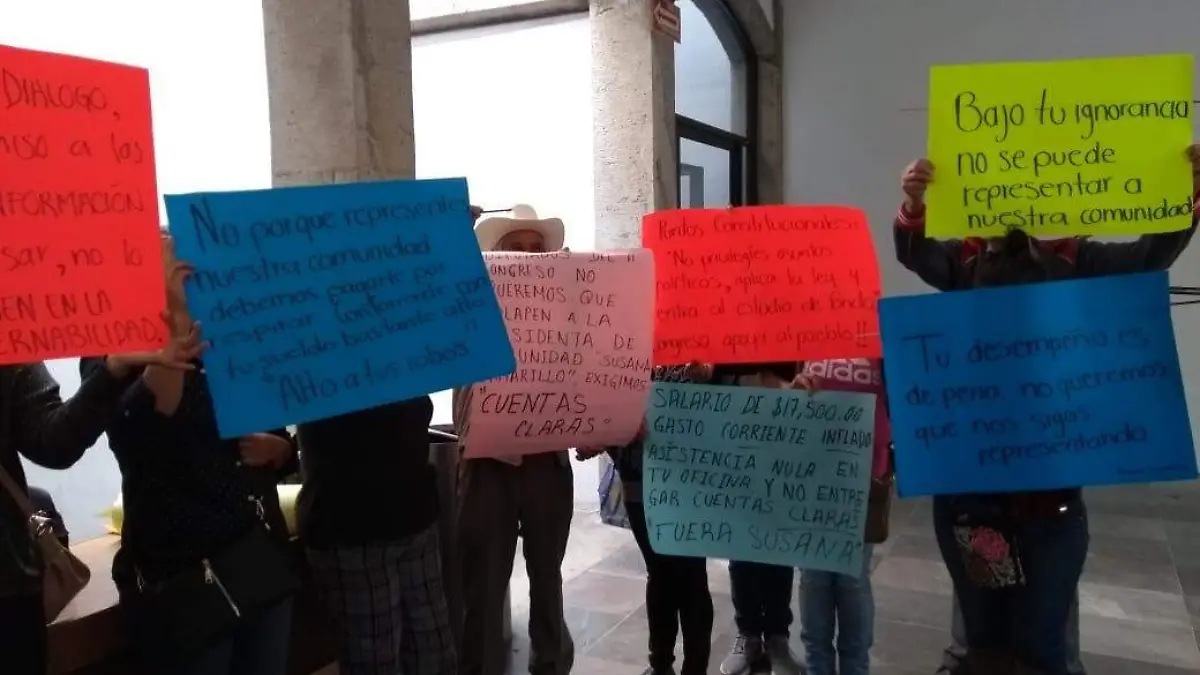 DIALOGO,
A LAS
FORMACIÓN
SAR, NO LO
EN EN LA
ERNABILIDAD.
No porque representes
nuestra comunidad
debemos pagarte por
respirar, conformate con
tu sueldo bastante alto
"Alto a tus robos"
CONGRESO NO
QUEREMOS QUE
SOLAPEN A LA
SIDENTA DE
MUNIDAD SUSANA
MARILLO" EXIGIMOS
"CUENTAS
CLARAS"
Puntos Constitucionales:
"No privilegies asuntos
políticos, aplica la ley y
entra al estudio de fondo,
congreso apoya al pueblo!!
adidas
SALARIO DE $17,500.00
GASTO CORRIENTE INFLADO
ASISTENCIA NULA EN
TU OFICINA Y NO ENTRE
GAR CUENTAS CLARAS
"FUERA SUSANA"
Bajo tu ignorancia
no se puede
representar a
nuestra comunidad
Tu desempeño es
de pena, no queremos
que nos sigas
representando